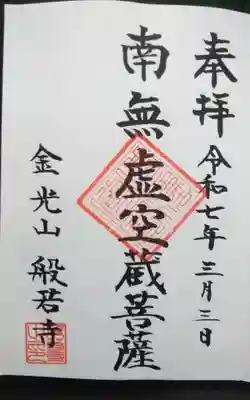 奉拝
令和七年三月三日
南無虚空蔵菩薩
金光山 般若寺